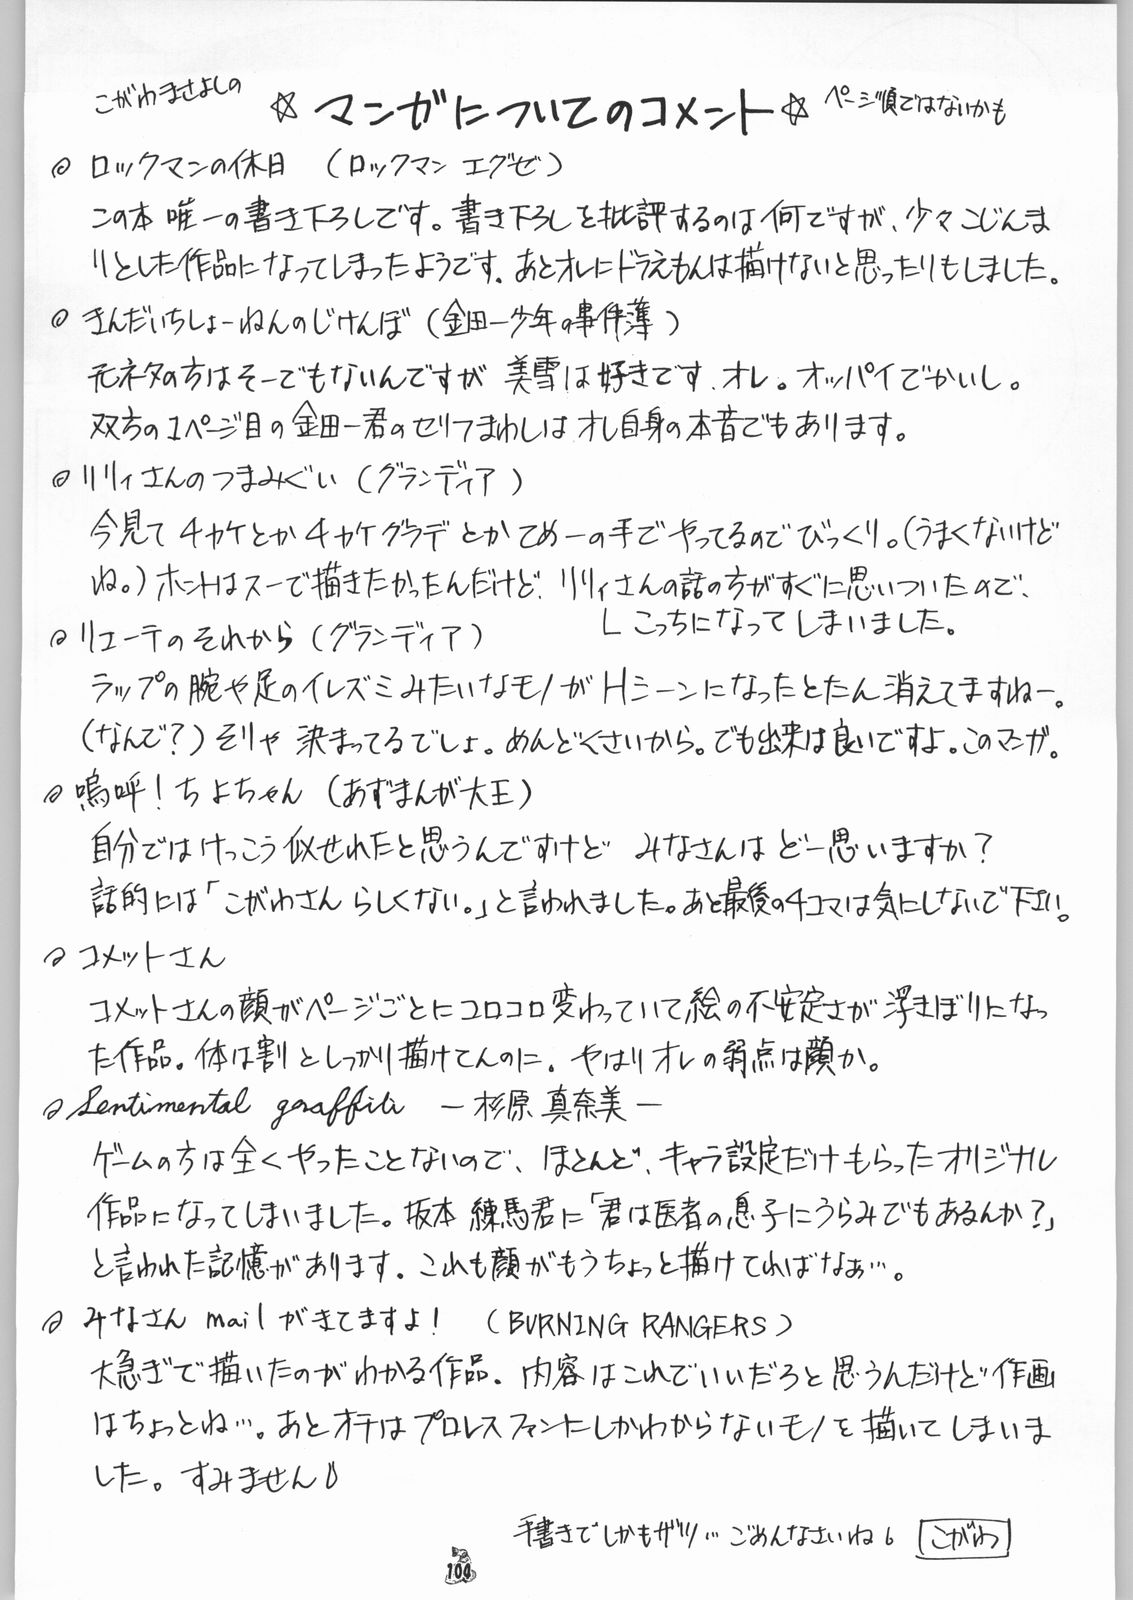 こがわまさよしの ☆マンガについてのコメント☆ ページ順ではないかも
◎ ロックマンの休日 (ロックマン エグゼ)
この本 唯一の書き下ろしです。書き下ろしを批評するのは何ですが、少々こじんま
りとした作品になってしまったようです。あとオレにドラえもんは描けないと思ったりもしました。
◎ きんだいちしょーねんのじけんぼ (金田一少年の事件薄)
元ネタの方はそーでもないんですが 美雪は好きです、オレ。オッパイでかいし。
双方の1ページ目の金田一君のセリフまわしは オレ自身の本音でもあります。
◎ リリィさんのつまみぐい (グランディア)
今見て チャケとかチャケグラデとかてめーの手でやってるのでびっくり。(うまくないけど
ね。)ホントはスーで描きたかったんだけど、リリィさんの話の方がすぐに思いついたので、
し こっちになってしまいました。
◎ リエーテのそれから (グランディア)
ラップの腕や足のイレズミみたいなモノがHシーンになったとたん消えてますねー。
(なんで?)そりゃ 決まってるでしょ。めんどくさいから。でも出来は良いですよ。このマンガ。
◎ 嗚呼!ちよちゃん (あずまんが大王)
自分ではけっこう似せれたと思うんですけど みなさんは どー思いますか?
話的には「こがわさん らしくない。」と言われました。あと最後の4コマは気にしないで下さい。
◎ コメットさん
コメットさんの顔がページごとにコロコロ変わっていて絵の不安定さが浮きぼりになっ
た作品。体は割としっかり描けてんのに。やはりオレの弱点は顔か。
◎ Sentimental graffiti ー杉原 真奈美ー
ゲームの方は全くやったことないので、ほとんど、キャラ設定だけもらったオリジナル
作品になってしまいました。坂本 練馬君に「君は医者の息子にうらみでもあるんか?」
と言われた記憶があります。これも顔がもうちょっと描けてればなぁ…。
◎ みなさん mailがきてますよ! (BURNING RANGERS)
大急ぎで描いたのがわかる作品。内容はこれでいいだろと思うんだけど作画
はちょっとね…。あとオチはプロレスファンにしかわからないモノを描いてしまいま
した。すみません
手書きでしかもザツ… ごめんなさいね。 こがわ
104